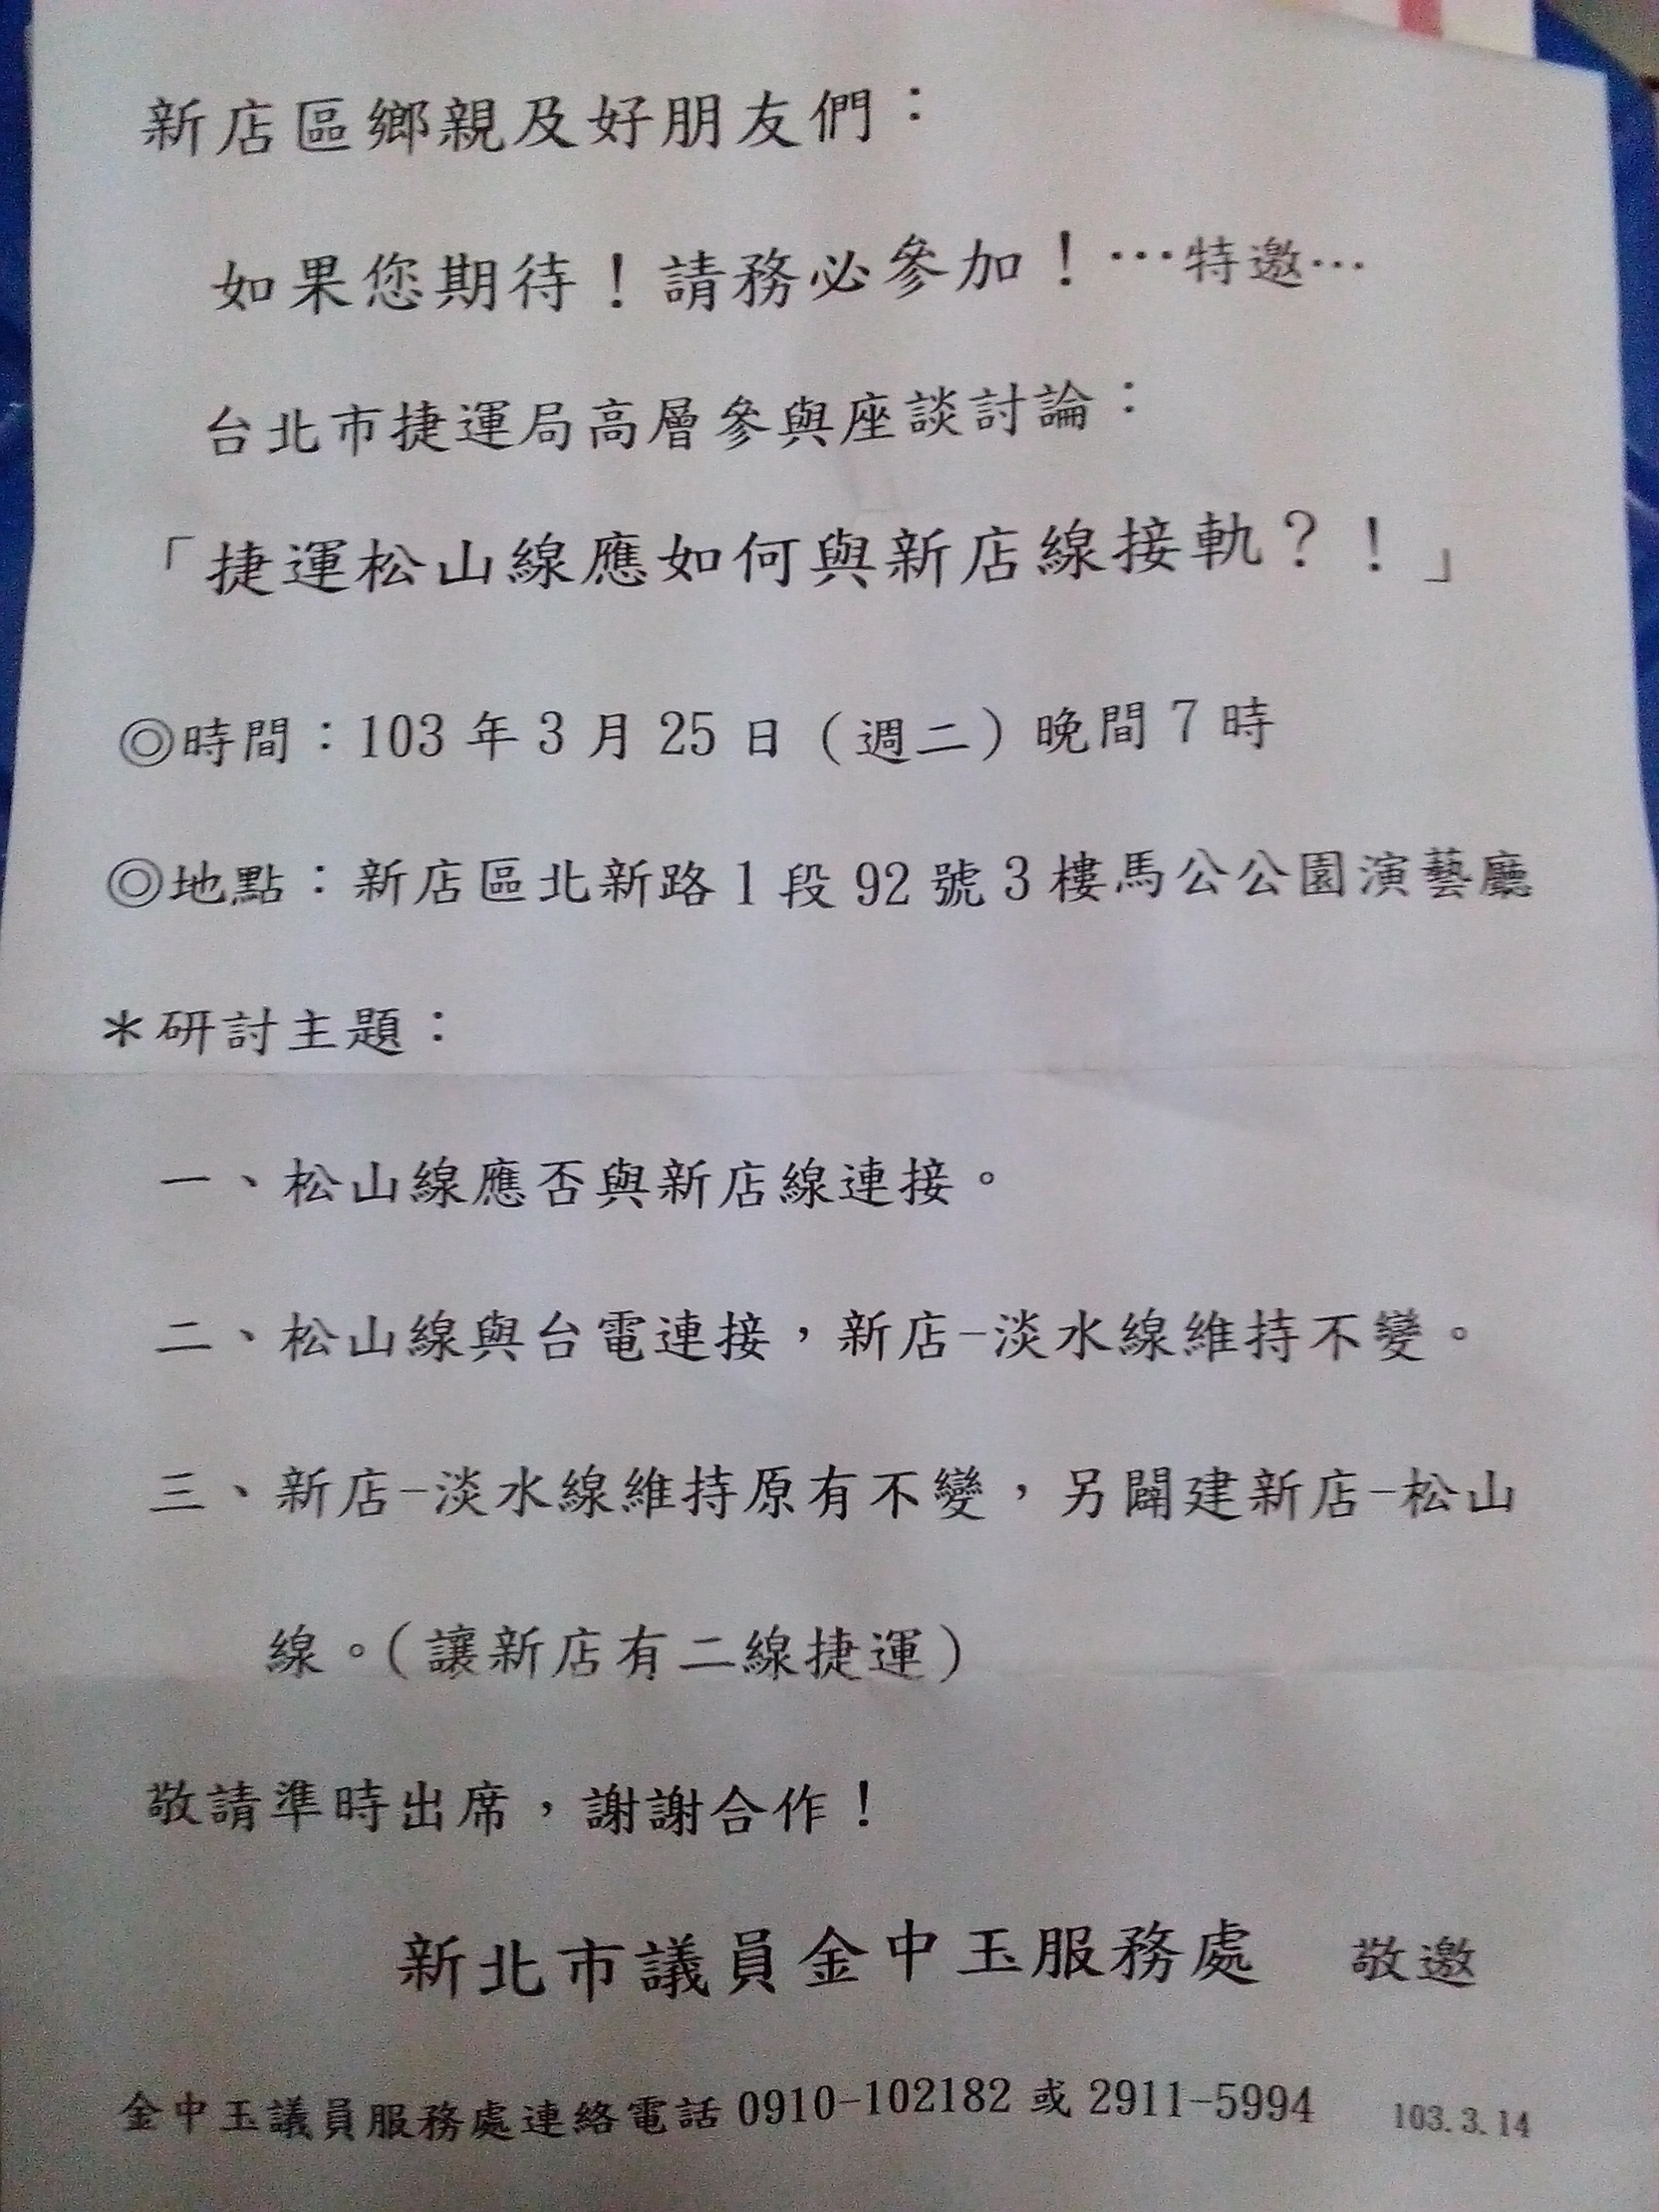 新店區鄉親及好朋友們：
如果您期待！請務必參加！…特邀…
台北市捷運局高層參與座談討論：
「捷運松山線應如何與新店線接軌？！」
◎時間：103年3月25日（週二）晚間7時
◎地點：新店區北新路1段92號3樓馬公公園演藝廳
＊研討主題：
一、松山線應否與新店線連接。
二、松山線與台電連接，新店-淡水線維持不變。
三、新店-淡水線維持原有不變，另闢建新店-松山
線。(讓新店有二線捷運)
敬請準時出席，謝謝合作！
新北市議員金中玉服務處 敬邀
金中玉議員服務處連絡電話 0910-102182 或 2911-5994 103.3.14